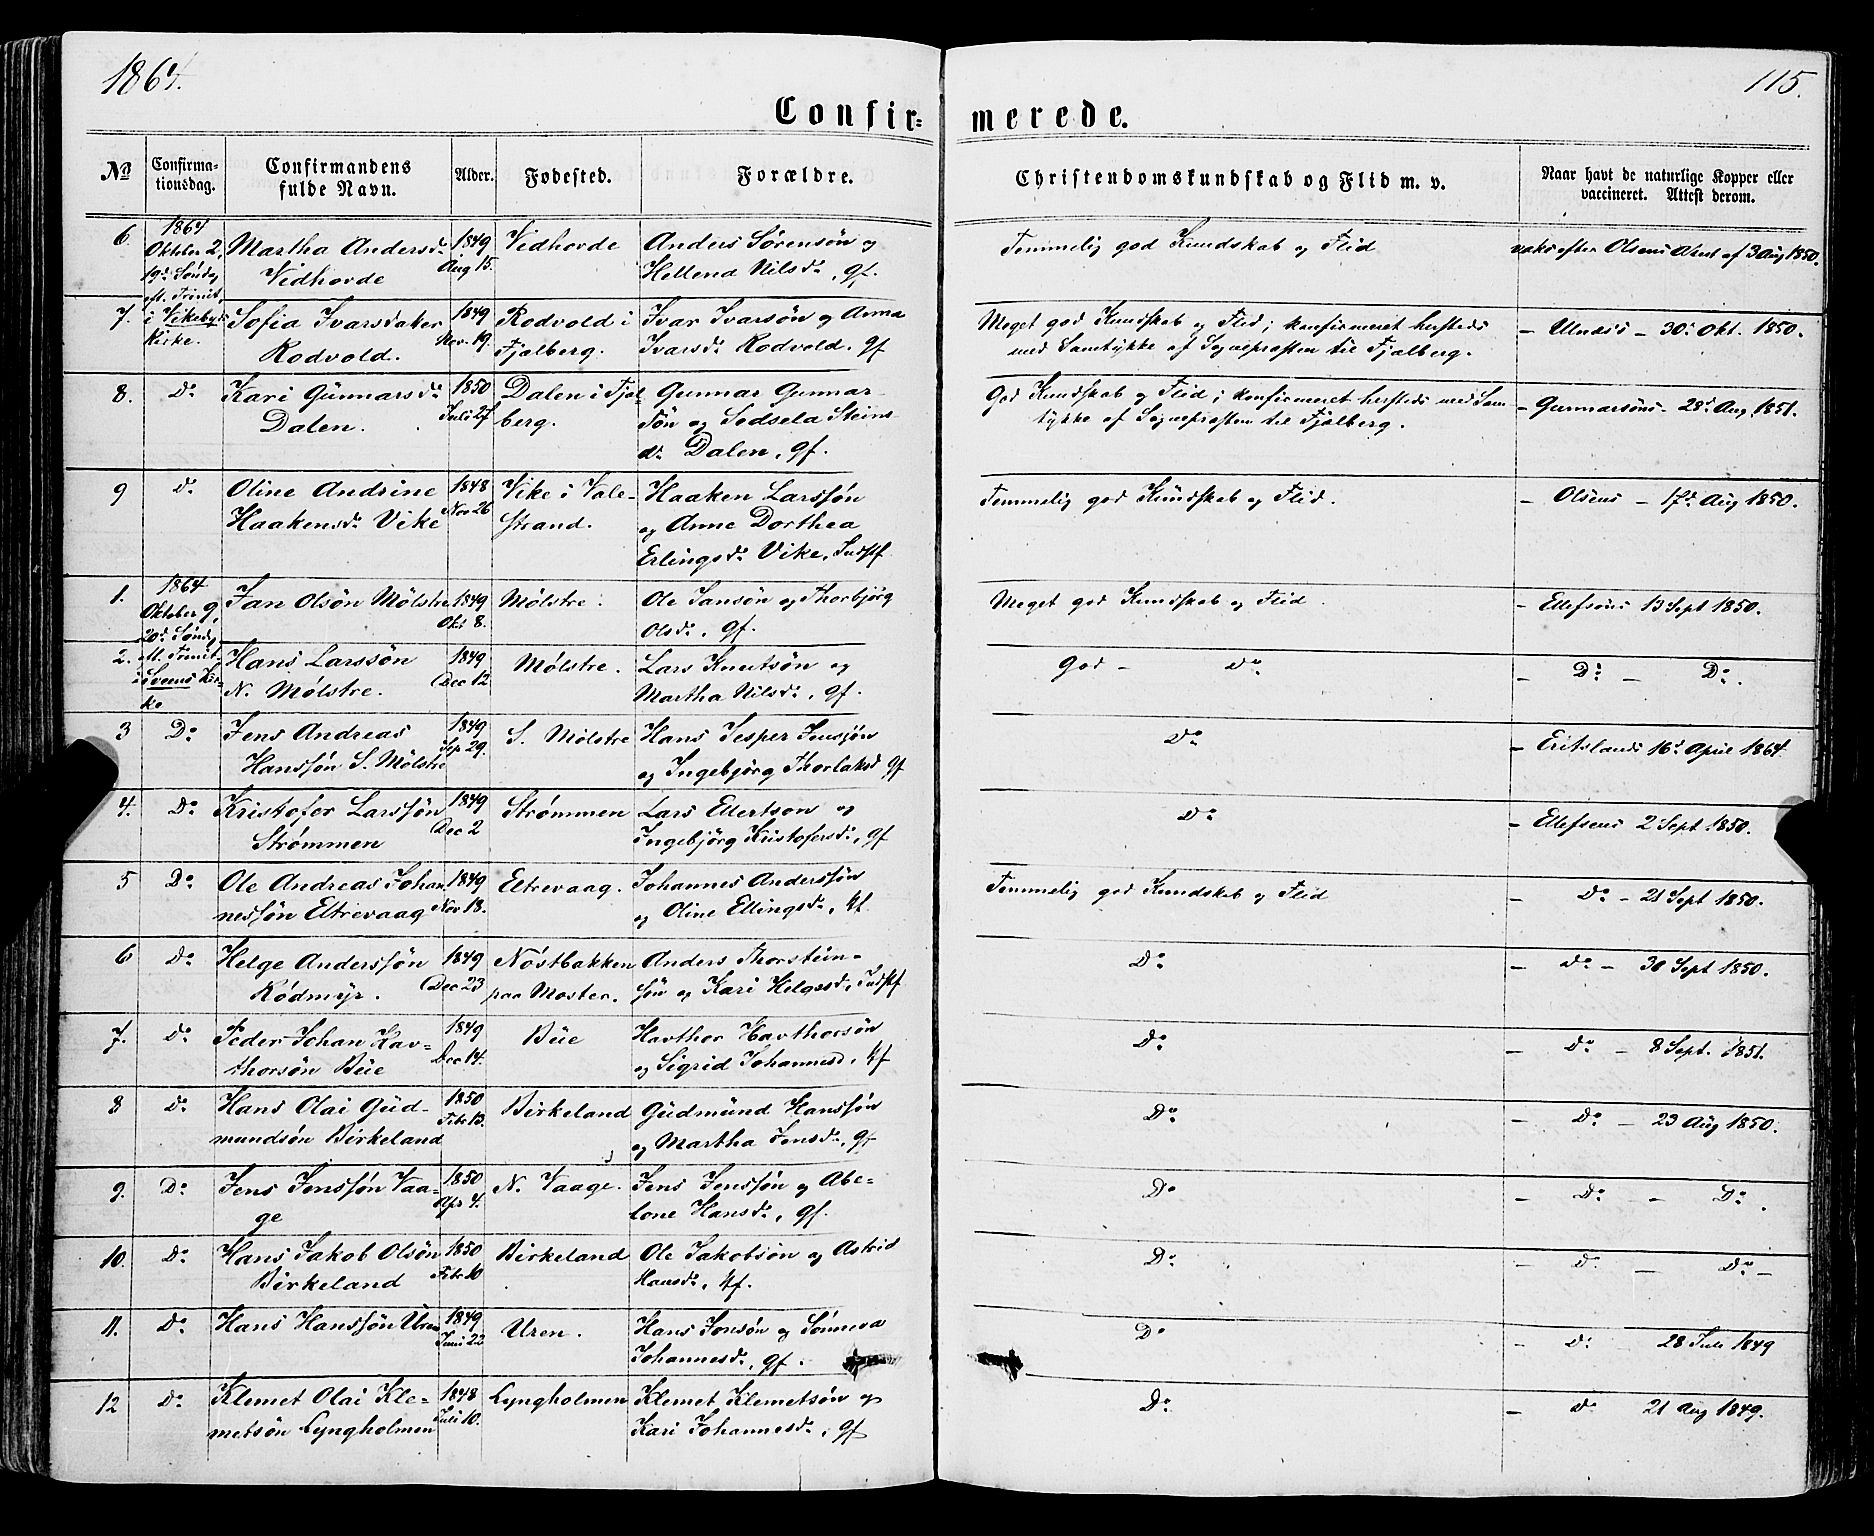 1864.
115.
Confir= merede.
No
Confirma-
tionsdag.
Confirmandens
fulde Navn.
Alder.
Fødested.
Forældre.
Christendomskundskab og Flid m. v.
Naar havt de naturlige Kopper eller
vaccineret. Attest derom.
6. 1864 Oktober 2, 19d. Søndag ef. Trinit.
Martha Andersd.
Vidhovde
1849
Aug 15.
Vidhovde
Anders Sørensøn og
Hellena Nilsd., gf.
Temmelig god Kundskab og Flid
vaks. efter Olsens Attest af 3 Aug 1850.
7. i Vikebygds Kirke.
Sofia Ivarsdatter
Rodvold.
1849
Nov. 19.
Rodvold i
Fjelberg.
Ivar Ivarsøn og Anna
Ivarsd. Rodvold. gf
Meget god Kundskab og Flid; konfirmeret hersteds
med Samtykke af Sognepræsten til Fjelberg.
— Ulvesis — 30. Okt. 1850.
8. Do
Kari Gunnarsd.
Dalen.
1850
Juli 27
Dalen i Fjel-
berg.
Gunnar Gunnar-
søn og Sodsela Steins
d. Dalen, gf.
God Kundskab og Flid; konfirmeret hersteds med Sam-
tykke af Sognepræsten til Fjelberg.
— Gunnarsøns — 28d Aug. 1851.
9 Do
Oline Andrine
Haakensd. Vike
1848
Nov 26
Vike i Vale-
strand.
Haaken Larssøn
og Anne Dorthea
Erlingsd. Vike, Indstf
Temmelig god Kundskab og Flid.
— Olsens — 17d Aug 1850.
1. 1864 Oktober 9, 20d. Sønd. ef. Trinit.
Jan Olsøn Mølstre
1849
Okt 8.
Mølstre.
Ole Jansøn og Thorbjørg
Olsd., gf.
Meget god Kundskab og Flid.
— Ellefsøns 13 Sept 1850.
2. i Sveens Kir-
ke
Hans Larssøn
N. Mølstre.
1849
Dec 12
Mølstre.
Lars Knutsøn og
Martha Nilsd., gf.
God — Do
— Do — Do.
3 Do
Jens Andreas
Hanssøn S. Mølstre
1849
Sep 29.
S. Mølstre
Hans Jesper Jenssøn
og Ingebjørg Thorlaksd gf
Do
— Eritslands 16d April 1864
4. Do
Kristofer Larssøn
Strømmen
1849
Dec 2
Strømmen
Lars Ellertson og
Ingebjørg Kristofersd., gf
Do
— Ellefsens 2 Sept 1850.
5 Do
Ole Andreas Johan
nessøn Eltrevaag
1849
Nov 18.
Eltrevaag.
Johannes Anderssøn
og Oline Ellingsd., kf
Temmelig god Kundskab og Flid
— Do — 21 Sept 1850.
6 Do
Helge Anderssøn
Rødmyr.
1849
Dec 23
Nøstbakken
paa Moster.
Anders Thorstein-
søn og Kari Helgesd, Indstf
Do
— Do — 30 Sept 1850.
7. Do
Peder Johan Hav-
thorsøn Bue
1849
Dec 14.
Bue
Havthor Havthorsøn
og Sigrid Johannesd, kf
Do
— Do — 8 Sept. 1851.
8 Do
Hans Olai Gud-
mundsøn Birkeland
1850
Febr 13.
Birkeland
Gudmund Hanssøn
og Martha Jensd., gf
Do
— Do — 23 Aug 1850.
9. Do
Jens Jenssøn Vaa-
ge
1850
Apr 4.
N. Vaage.
Jens Jenssøn og Abe-
lone Hansd., gf.
Do
— Do — Do.
10. Do
Hans Jakob Olsøn
Birkeland
1850
Febr 10
Birkeland
Ole Jakobsøn og Astrid
Hansd., kf.
Do
— Do — Do —
11. Do
Hans Hanssøn Uren
1849
Juni 22
Uren.
Hans Jonsøn og Sønneva
Johannesd., gf.
Do
— Do 28 Juli 1849
12 Do
Klemet Olai Kle-
metsøn Lyngholmen
1848
Juli 10.
Lyngholmen
Klemet Klemetsøn og
Kari Johannesd., gf
Do
— Do 21 Aug 1849.